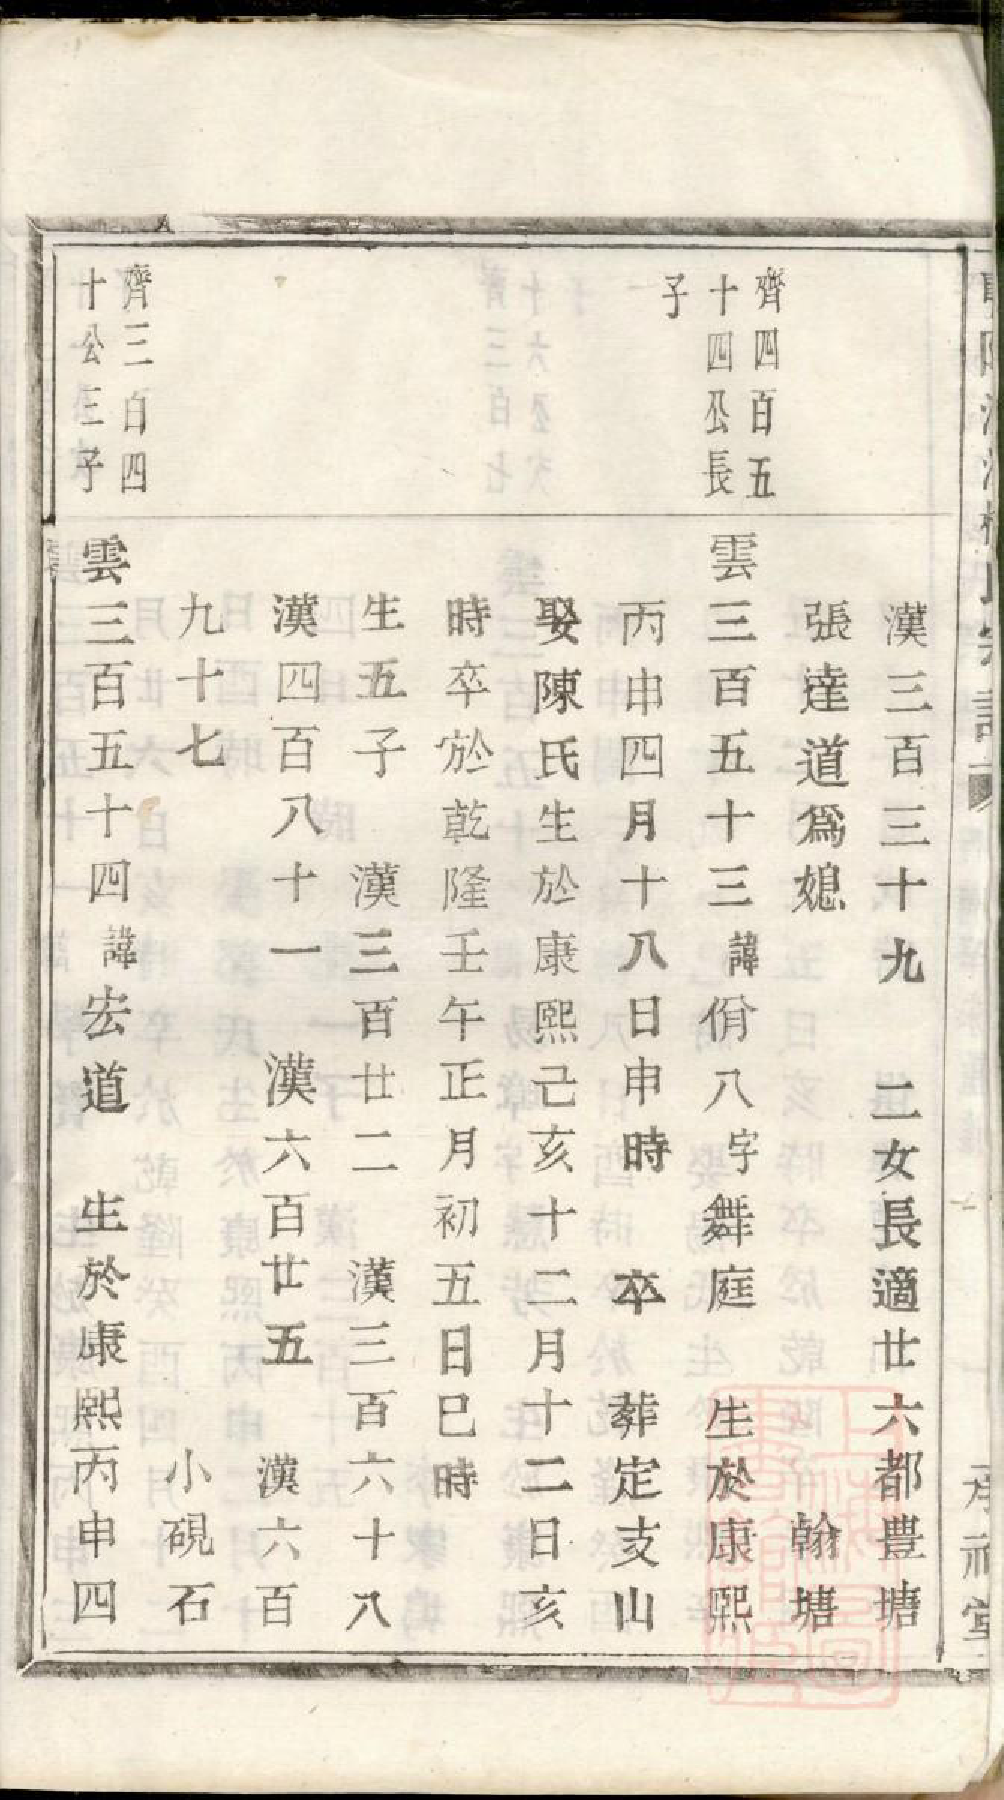 漢三百三十九　二女長適廿六都豊塘
張達道爲媳　翰塘
齊四百五
十四公長
子
雲三百五十三諱佾八字舞庭　生於康熙
丙申四月十八日申時　卒　葬定支山
娶陳氏生於康熙己亥十二月十二日亥
時卒於乾隆壬午正月初五日巳時
生五子　漢三百廿二　漢三百六十八
漢四百八十一　漢六百廿五　漢六百
九十七　小硯石
齊三百四
十公三子
雲三百五十四諱宏道　生於康熙丙申四